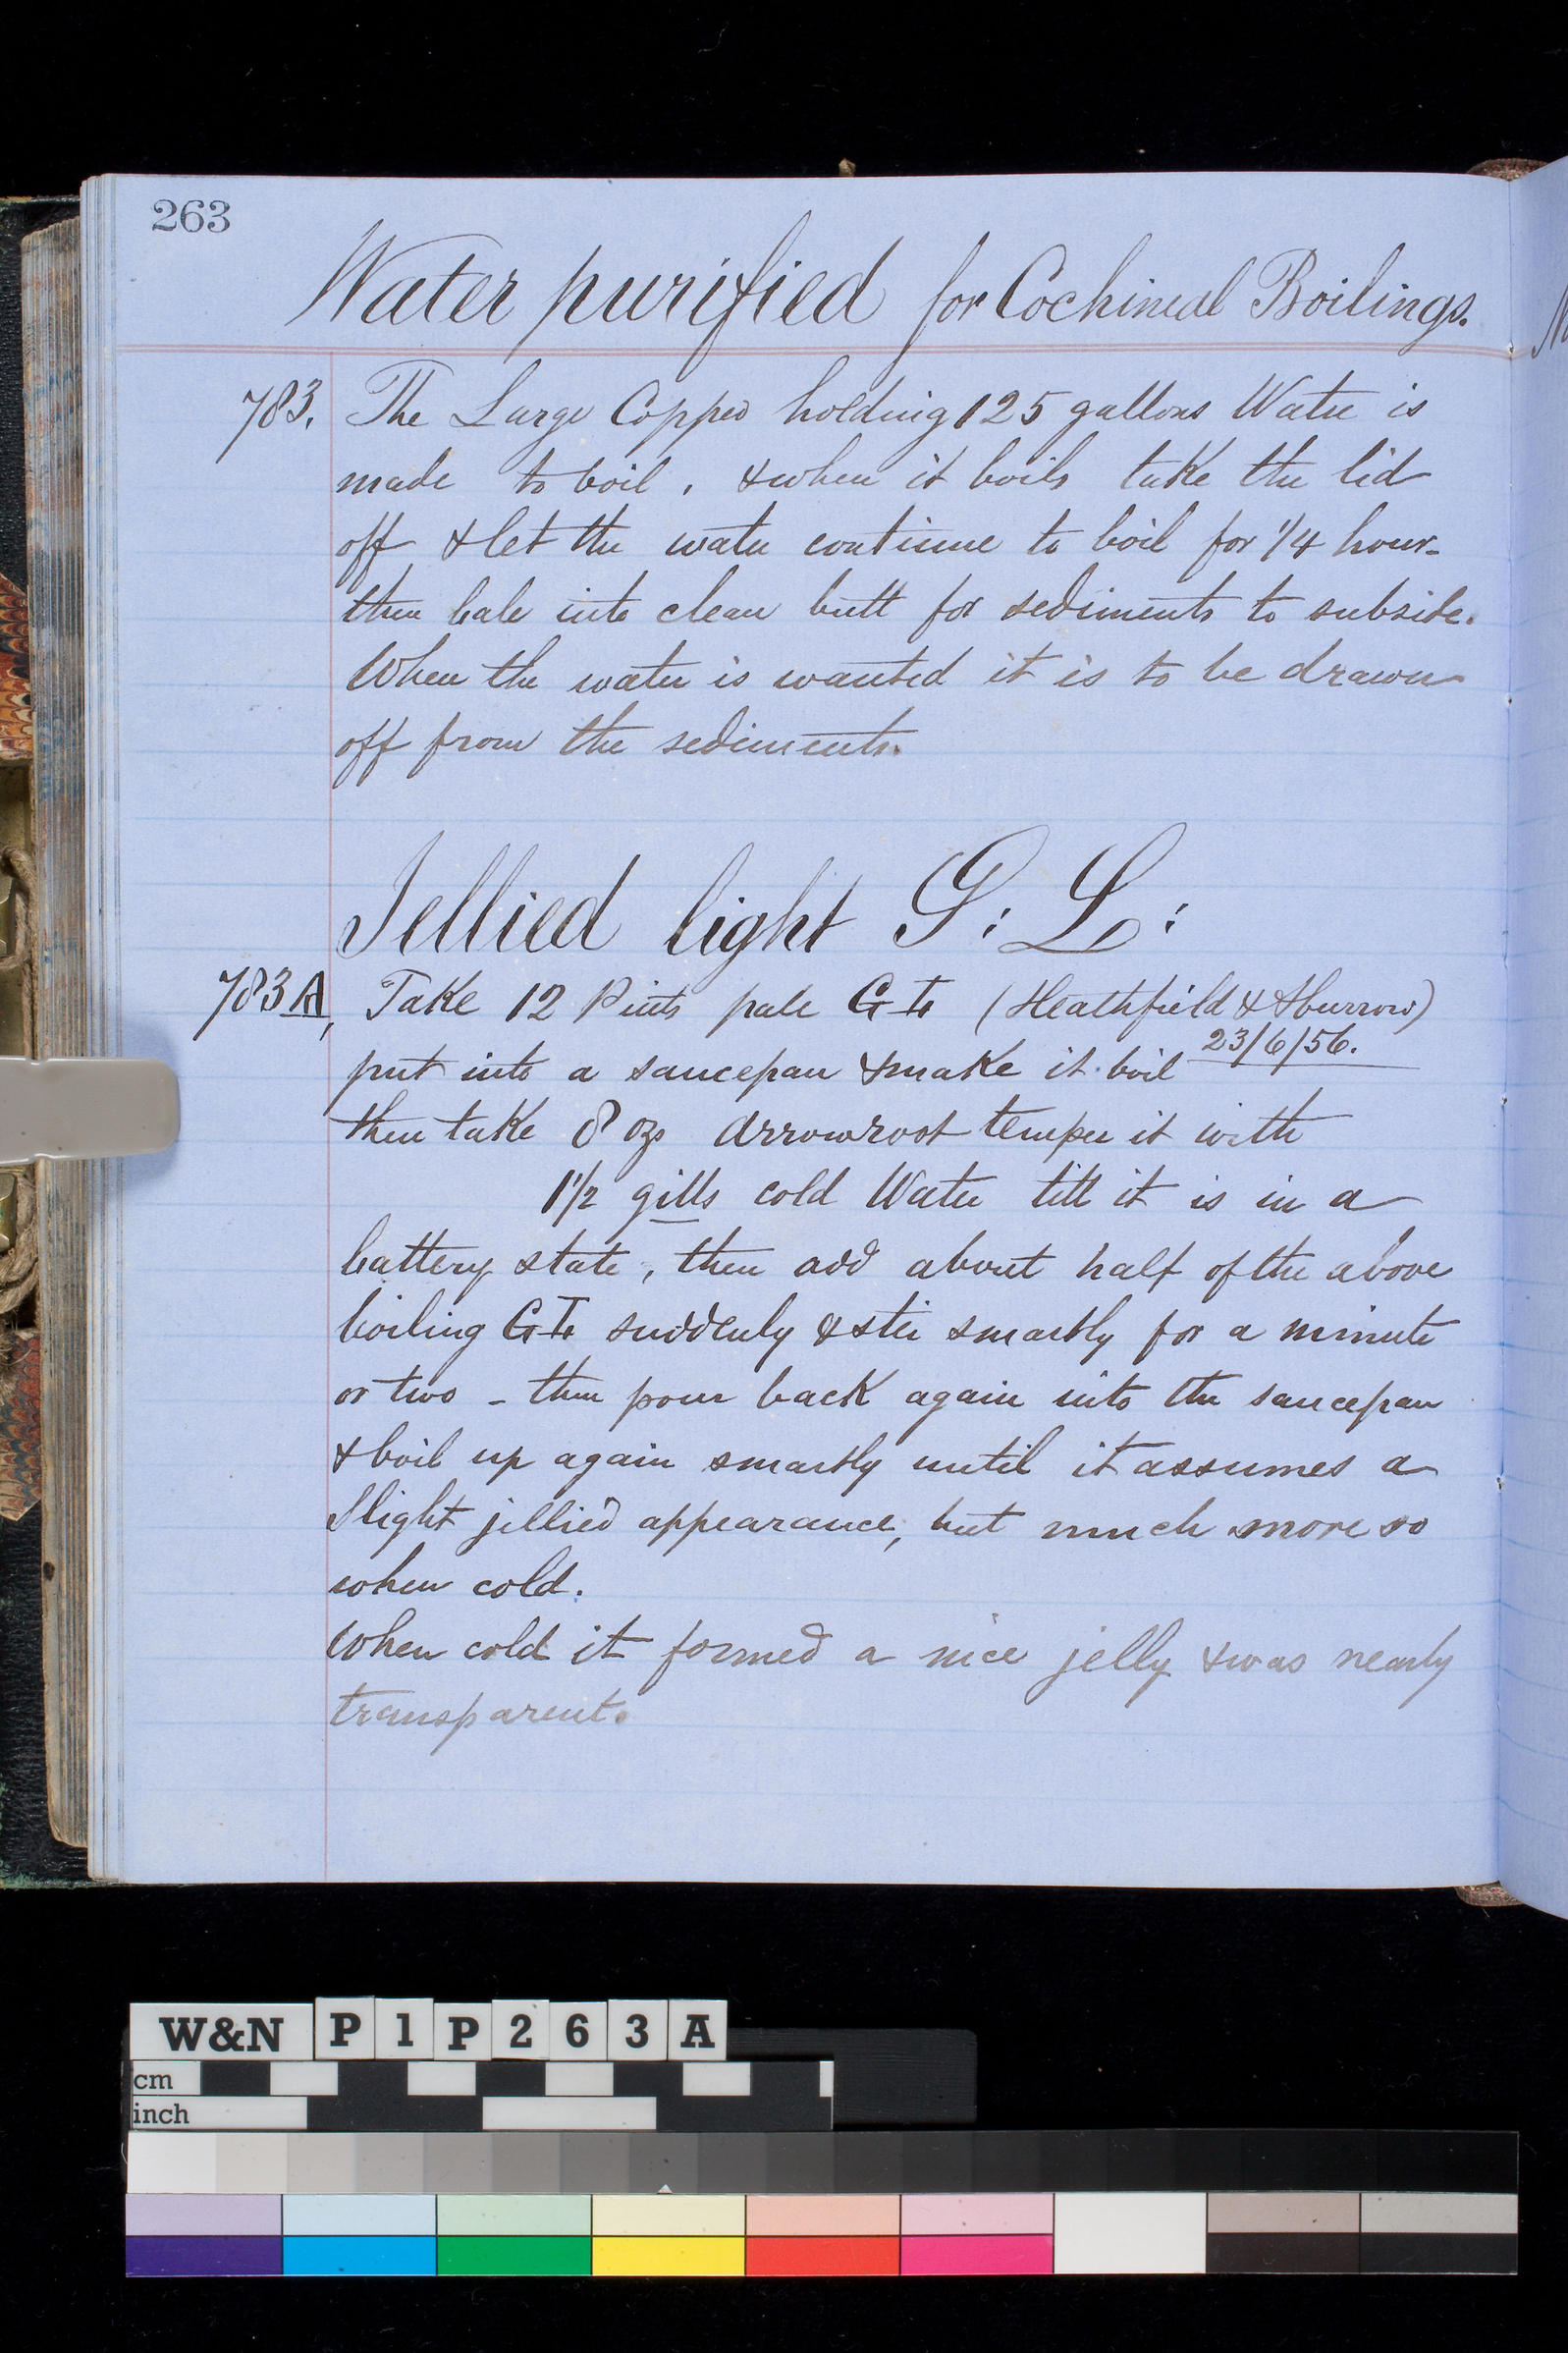 263
Water purified for Cochineal Boilings.
783. The Large Copper holding 125 gallons Water is
made to boil, & when it boils take the lid
off & let the water continue to boil for 1/4 hour-
then bale into clean butt for sediments to subside.
When the water is wanted it is to be drawn
off from the sediments.
Jellied light G: L:
783A, Take 12 Pints pale (Heathfield & Burrow)
23/6/56.
put into a saucepan & make it boil
then take 8 ozs arrowroot temper it with
1 1/2 gills cold Water till it is in a
battery state, then add about half of the above
boiling suddenly & stir smartly for a minute
or two - then pour back again into the saucepan
& boil up again smartly until it assumes a
slight jellied appearance, but much more so
when cold.
When cold it formed a nice jelly & was nearly
transparent.
W&N P1P263A
cm
inch